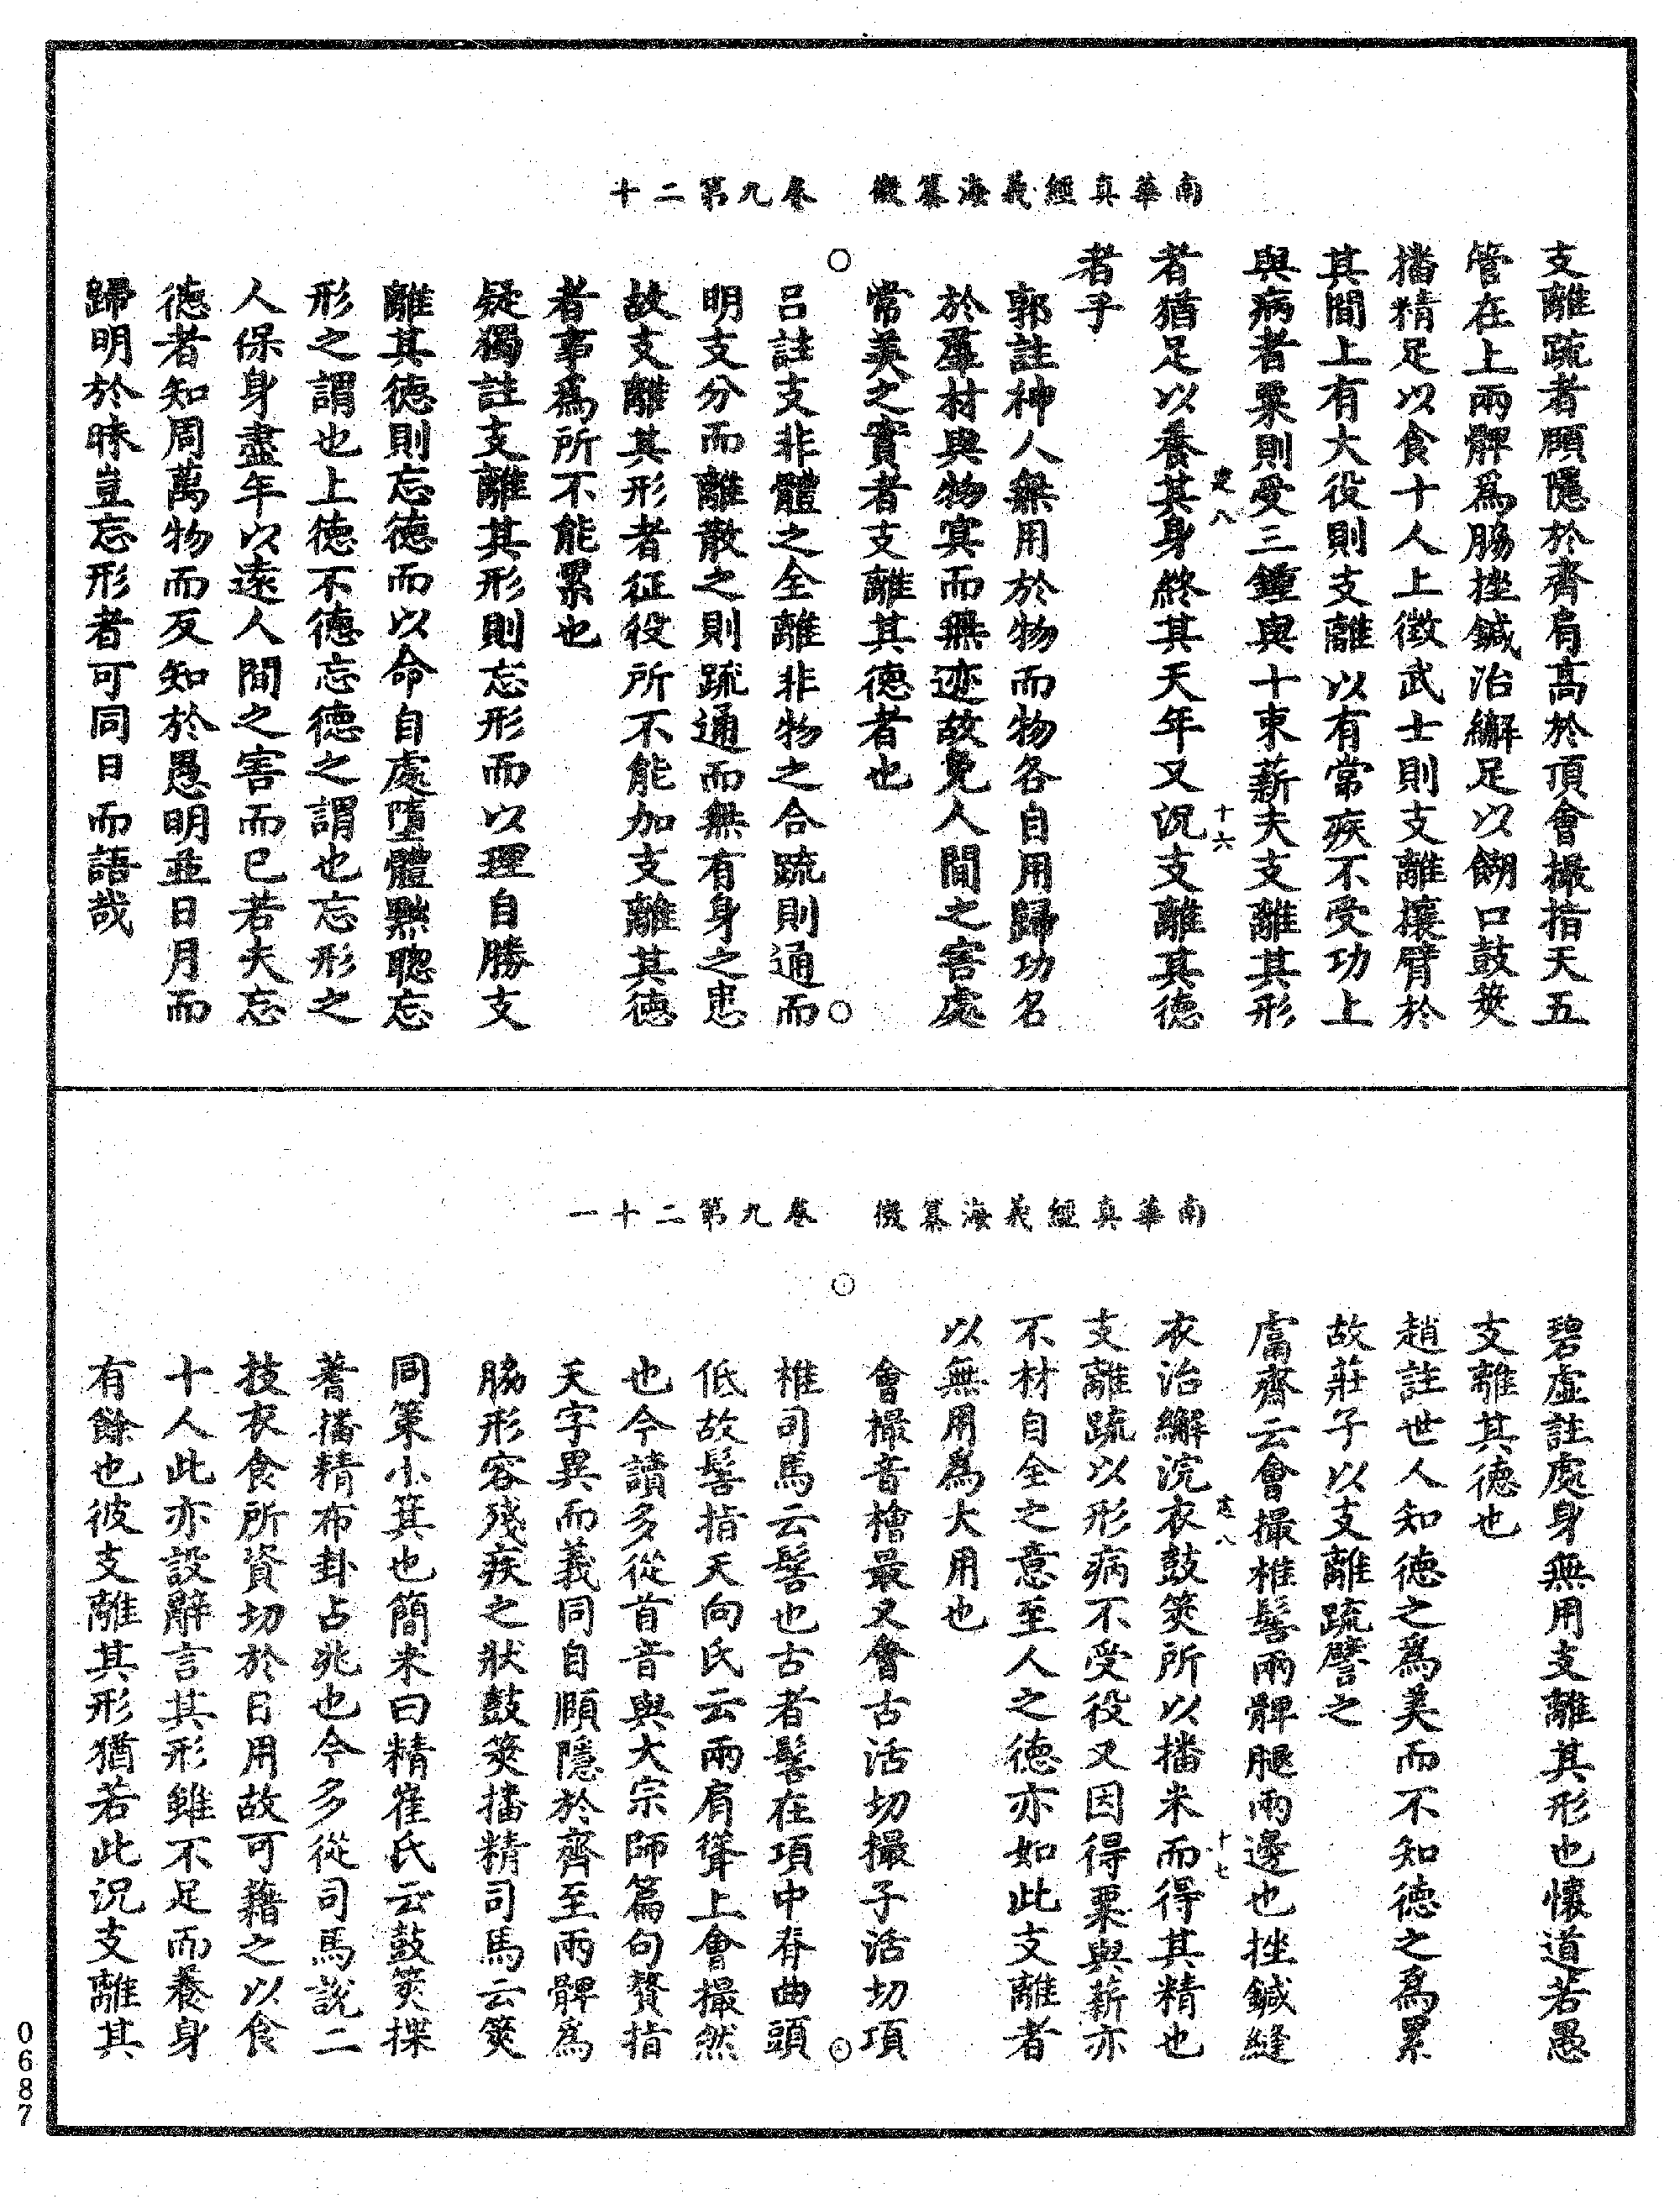 南華真經義海纂微　卷九第二十
支離疏者頤隱於齊肩高於頂會撮指天五
管在上兩髀爲脇挫鍼治繲足以餬口鼓筴
播精足以食十人上徵武士則支離攘臂於
其間上有大役則支離以有常疾不受功上
與病者粟則受三鍾與十束薪夫支離其形
者猶足以養其身終其天年又況支離其德
者乎
郭註神人無用於物而物各自用歸功名
於羣材與物冥而無迹故免人間之害處
常美之實者支離其德者也
呂註支非體之全離非物之合疏則通而
明支分而離散之則疏通而無有身之患
故支離其形者征役所不能加支離其德
者事爲所不能累也
疑獨註支離其形則忘形而以理自勝支
離其德則忘德而以命自處墮體黜聰忘
形之謂也上德不德忘德之謂也忘形之
人保身盡年以遠人間之害而已若夫忘
德者知周萬物而反知於愚明並日月而
歸明於昧豈忘形者可同日而語哉
十六
南華真經義海纂微　卷九第二十一
碧虛註處身無用支離其形也懷道若愚
支離其德也
趙註世人知德之爲美而不知德之爲累
故莊子以支離疏譬之
鬳齋云會撮椎髻兩髀腿兩邊也挫鍼縫
衣治繲浣衣鼓筴所以播米而得其精也
支離疏以形病不受役又因得粟與薪亦
不材自全之意至人之德亦如此支離者
以無用爲大用也
會撮音檜最又會古活切撮子活切項
椎司馬云髻也古者髻在項中脊曲頭
低故髻指天向氏云兩肩聳上會撮然
也今讀多從首音與大宗師篇句贅指
天字異而義同自頤隱於齊至兩髀爲
脇形容殘疾之狀鼓筴播精司馬云筴
同策小箕也簡米曰精崔氏云鼓筴揲
蓍播精布卦占兆也今多從司馬說二
技衣食所資切於日用故可藉之以食
十人此亦設辭言其形雖不足而養身
有餘也彼支離其形猶若此況支離其
十七
0687